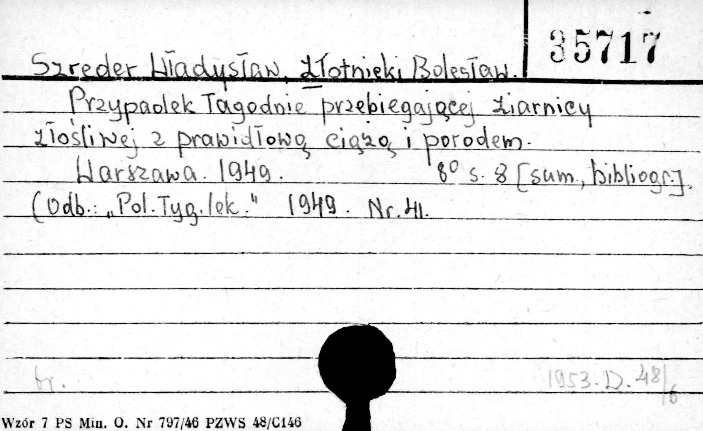 35717
Szręder Władysław, Złotnicki Bolesław.
Przypadek łagodnie przebiegającej ziarnicy
złośliwej z prawidłową ciążą i porodem.
Warszawa. 1949. 8° s. 8 [sum., bibliogr.].
(Odb.: „Pol. Tyg. lek." 1949. Nr. 41.
br. 1953. D. 48/6
Wzór 7 PS Min. O. Nr 797/46 PZWS 48/C146